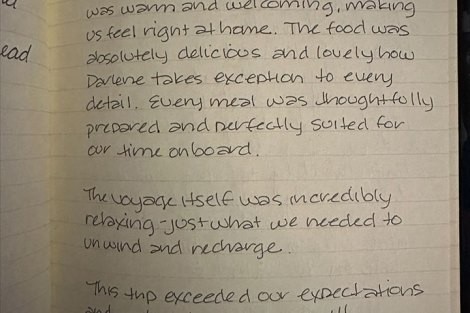 was warm and welcoming, making
us feel right at home. The food was
ead
absolutely delicious and lovely how
Darlene takes exception to every
detail. Every meal was thoughtfully
prepared and perfectly suited for
our time onboard.
The voyage itself was incredibly
relaxing - just what we needed to
unwind and recharge.
This trip exceeded our expectations
and